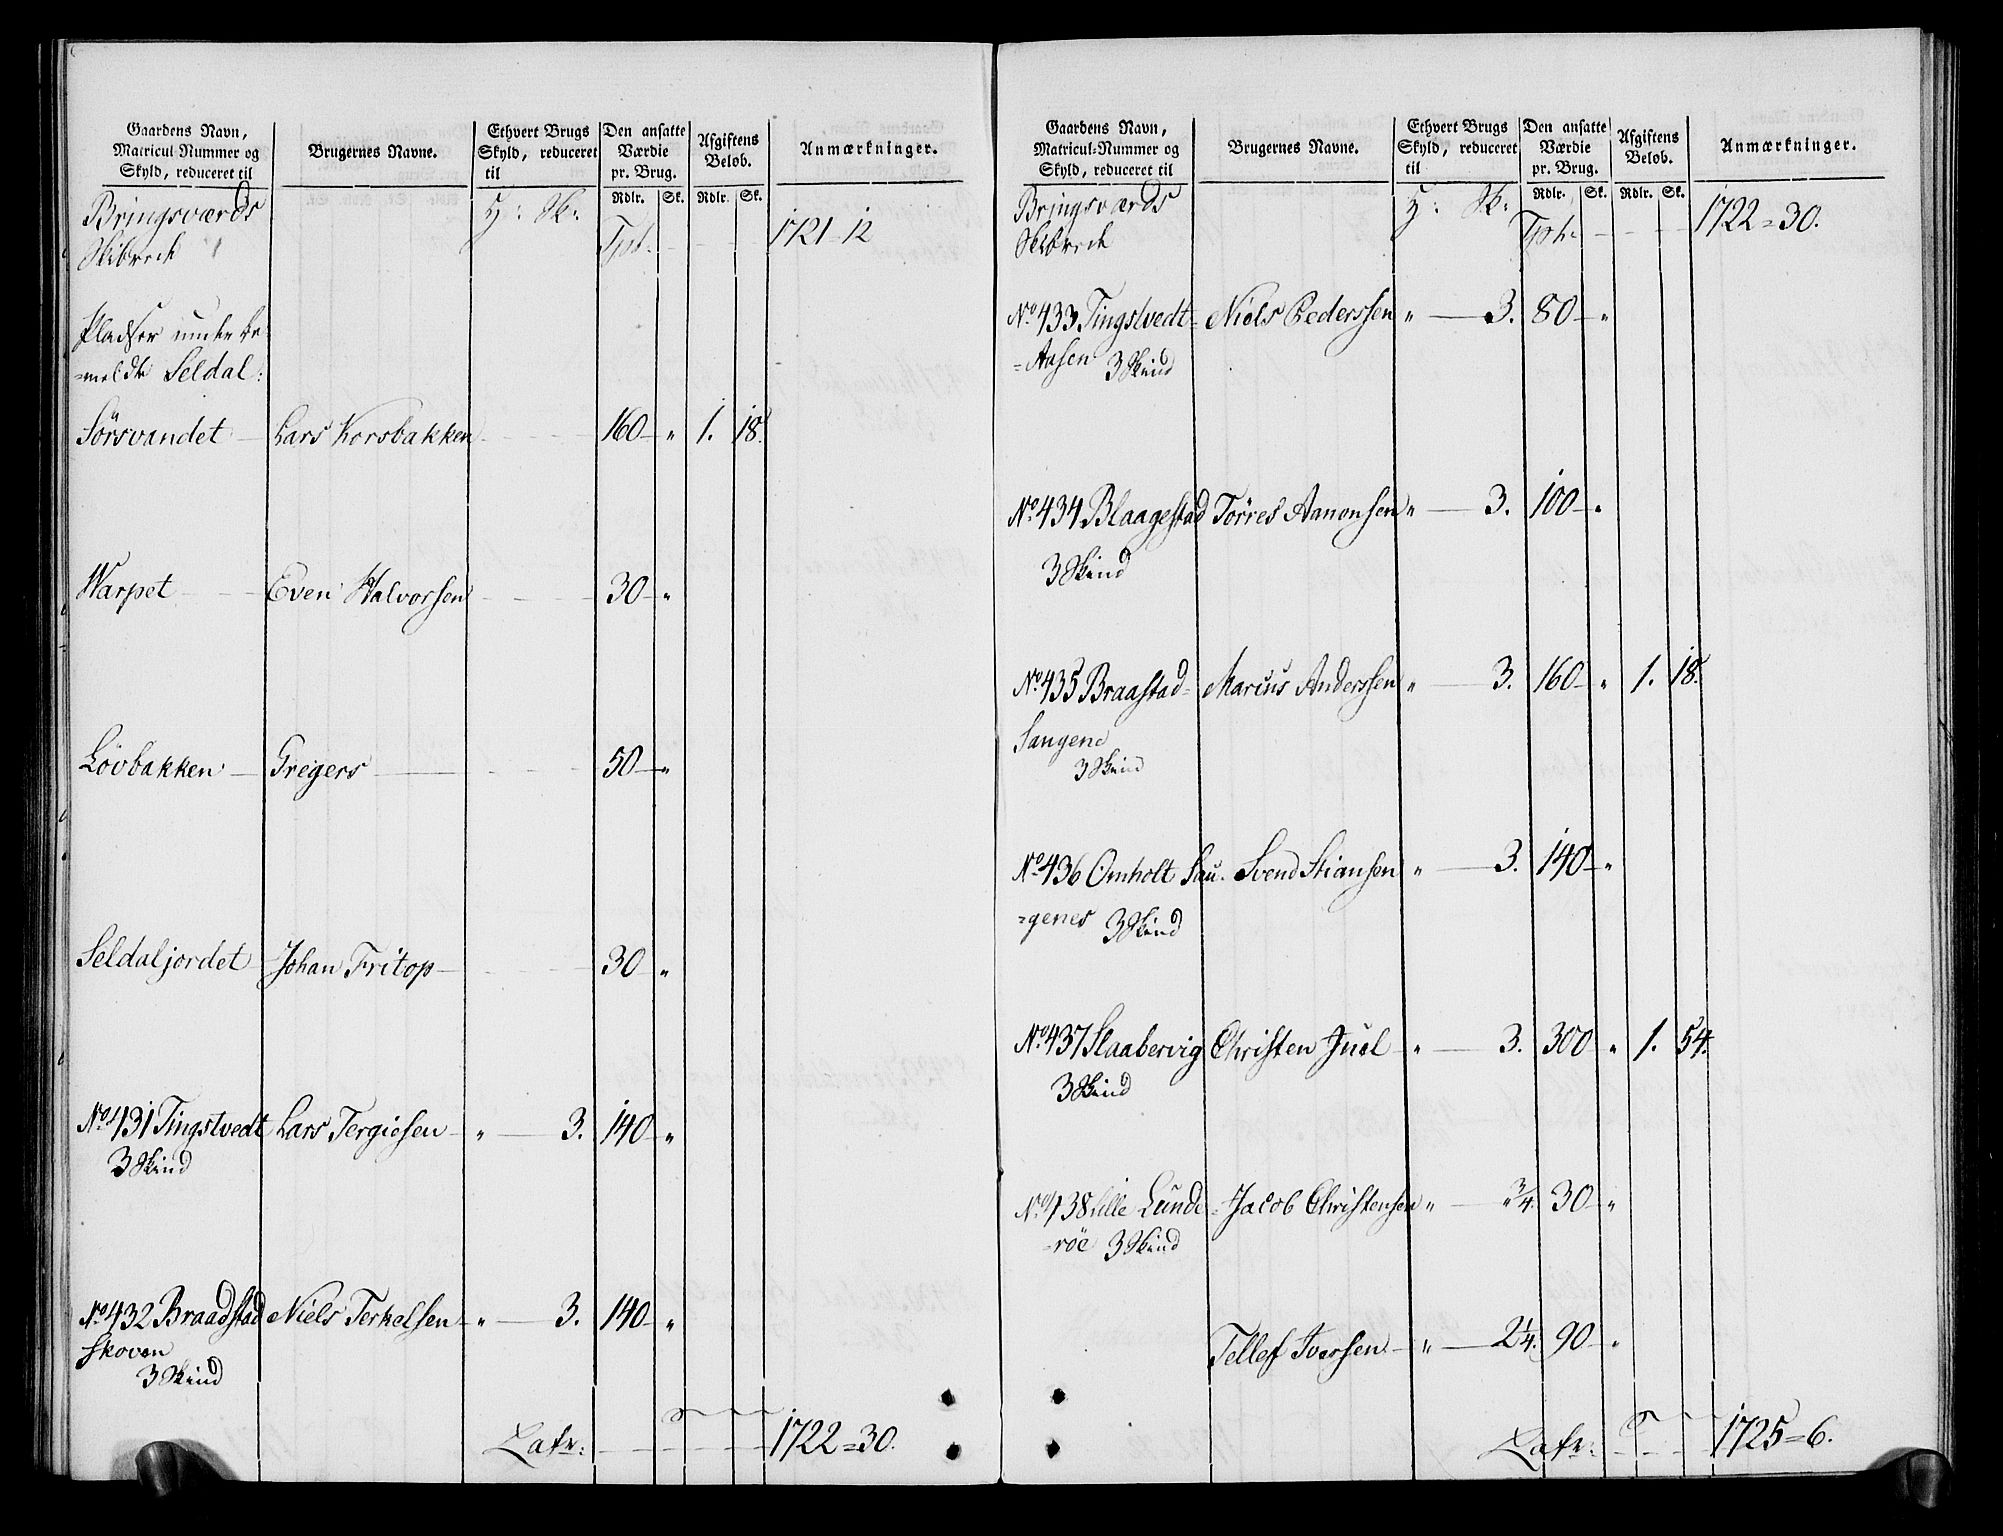 Gaardens Navn,
Matricul-Nummer og
Skyld, reduceret til
Brugernes Navne.
Ethvert Brugs
Skyld, reduceret
til
Den ansatte
Værdie
pr. Brug.
Rdlr. Sk.
Afgiftens
Beløb.
Rdlr. Sk.
Anmærkninger.
Bringsværds
Skibrede
H: Sk:
Tpt: 1721=12
Pladser under be-
=meldte Seldal:
Sörsvandet Lars Korsbakken 160 " 1. 18.
Warpet Even Halvorsen 30 "
Lövbakken Gregers 50 "
Seldaljordet Johan Fritop 30 "
No 431 Tingstvedt Lars Tergiesen " 3. 140 "
3 Skind
No 432 Braadstad Niels Terkelsen " 3. 140 "
Skoven
3 Skind
Lafr: 1722=30.
Gaardens Navn,
Matricul-Nummer og
Skyld, reduceret til
Brugernes Navne.
Ethvert Brugs
Skyld, reduceret
til
Den ansatte
Værdie
pr. Brug.
Rdlr. Sk.
Afgiftens
Beløb.
Rdlr. Sk.
Anmærkninger.
Bringsværds
Skibrede
H: Sk:
Tpt: 1722=30.
No 433 Tingstvedt= Niels Pederssen " 3. 80 "
=Aasen 3 Skind
No 434 Blaagestad Tørres Aanonsen " 3. 100 "
3 Skind
No 435 Braastad= Marius Anderssen " 3. 160 " 1. 18.
Sangene
3 Skind
No 436 Omholt Sau- Svend Stiansen " 3. 140 "
=genes 3 Skind
No 437 Slaabervig Christen Juel " 3. 300 " 1. 54.
3 Skind
No 438 Lille Lunde= Jacob Christensen " " 3/4. 30 "
=röe 3 Skind
Tellef Iversen " 2 1/4. 90 "
Lafr: 1725=6.